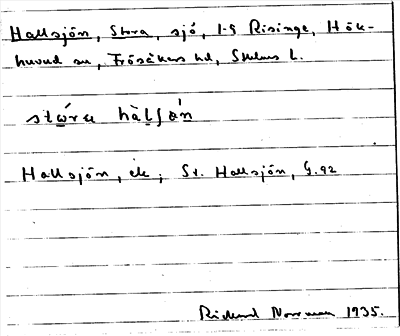 Hallsjön, Stora, sjö, 1-9 Risinge, Hök-
huvud sn, Frösåkers hd, Sthlms l.
stó̱ra hàlʃø̀n
Hallsjön, ek; St. Hallsjön, G.92
Rickard Norrman 1935.